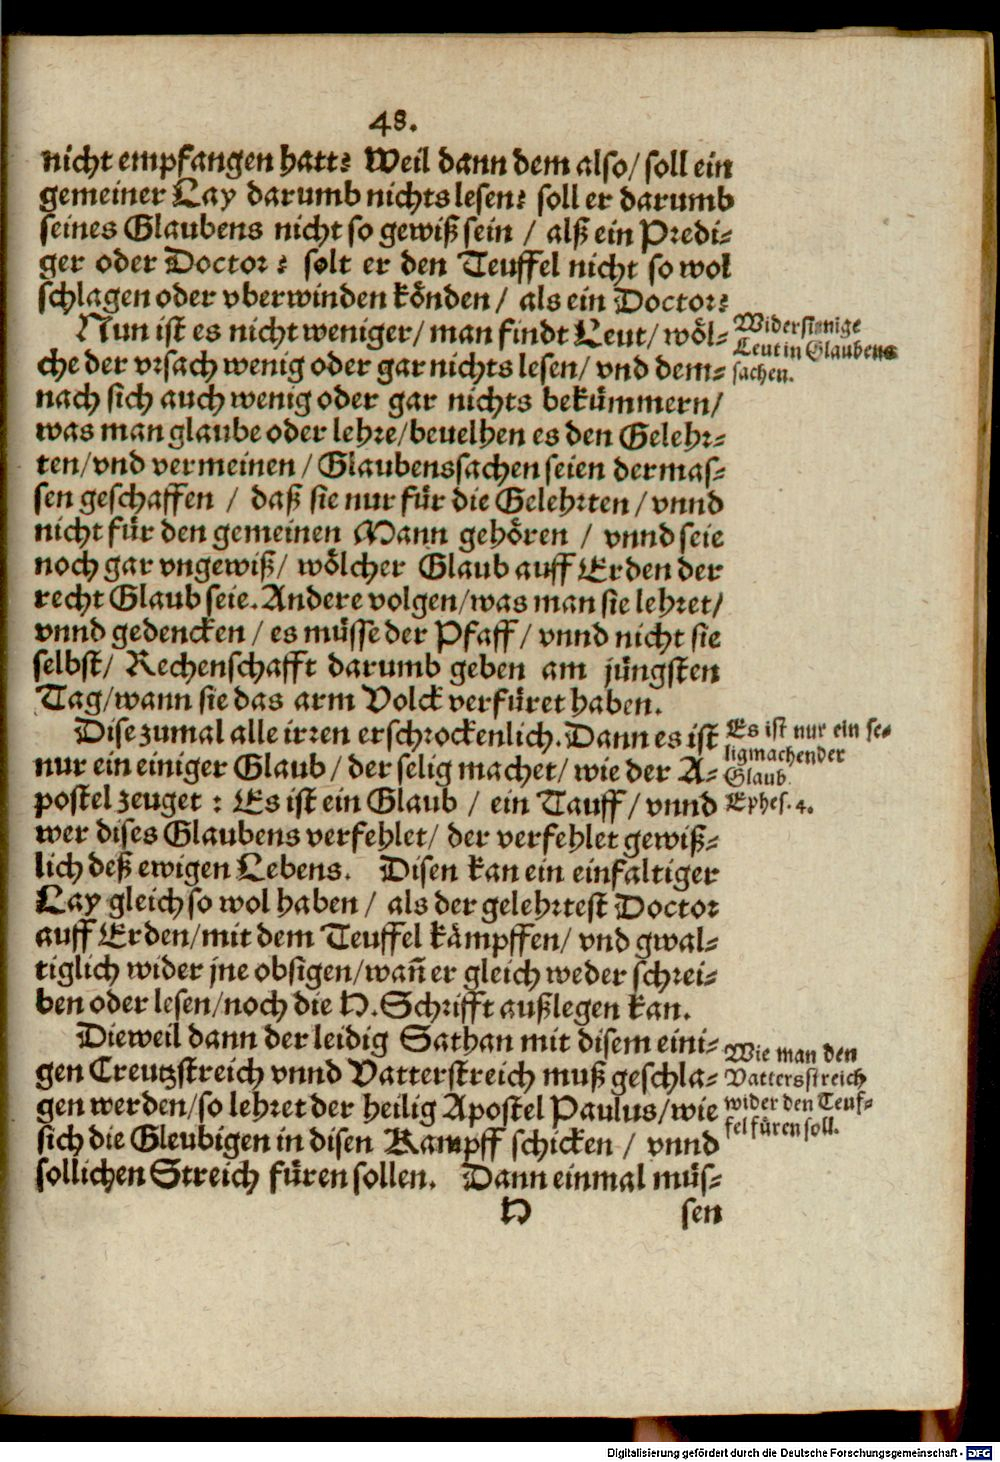 48.
nicht empfangen hatt? Weil dann dem also/ soll ein
gemeiner Lay darumb nichts lesen? soll er darumb
seines Glaubens nicht so gewiß sein / alß ein Predi-
ger oder Doctor? solt er den Teuffel nicht so wol
schlagen oder vberwinden könden/ als ein Doctor?
Nun ist es nicht weniger/ man findt Leut/ wöl-
che der vrsach wenig oder gar nichts lesen/ vnd dem-
nach sich auch wenig oder gar nichts bekümmern/
was man glaube oder lehre/ beuelhen es den Gelehr-
ten/ vnd vermeinen / Glaubenssachen seien dermas-
sen geschaffen / daß sie nur für die Gelehrten / vnnd
nicht für den gemeinen Mann gehören / vnnd seie
noch gar vngewiß/ wölcher Glaub auff Erden der
recht Glaub seie. Andere volgen/ was man sie lehret/
vnnd gedencken / es müsse der Pfaff / vnnd nicht sie
selbst/ Rechenschafft darumb geben am jüngsten
Tag/ wann sie das arm Volck verfüret haben.
Dise zumal alle irren erschrockenlich. Dann es ist
nur ein einiger Glaub/ der selig machet/ wie der A-
postel zeuget : Es ist ein Glaub / ein Tauff/ vnnd
wer dises Glaubens verfehlet/ der verfehlet gewiß-
lich deß ewigen Lebens. Disen kan ein einfaltiger
Lay gleich so wol haben / als der gelehrtest Doctor
auff Erden/ mit dem Teuffel kämpffen/ vnd gwal-
tiglich wider jne obsigen/ wañ er gleich weder schrei-
ben oder lesen/ noch die H. Schrifft außlegen kan.
Dieweil dann der leidig Sathan mit disem eini-
gen Creutzstreich vnnd Vatterstreich muß geschla-
gen werden/ so lehret der heilig Apostel Paulus/ wie
sich die Gleubigen in disen Kampff schicken / vnnd
sollichen Streich füren sollen. Dann einmal müs-
H sen
Widersinige
Leut in Glaubens
sachen.
Es ist nur ein se-
ligmachender
Glaub.
Ephes. 4.
Wie man den
Vattersstreich
wider den Teuf-
fel füren soll.
Digitalisierung gefördert durch die Deutsche Forschungsgemeinschaft - DFG